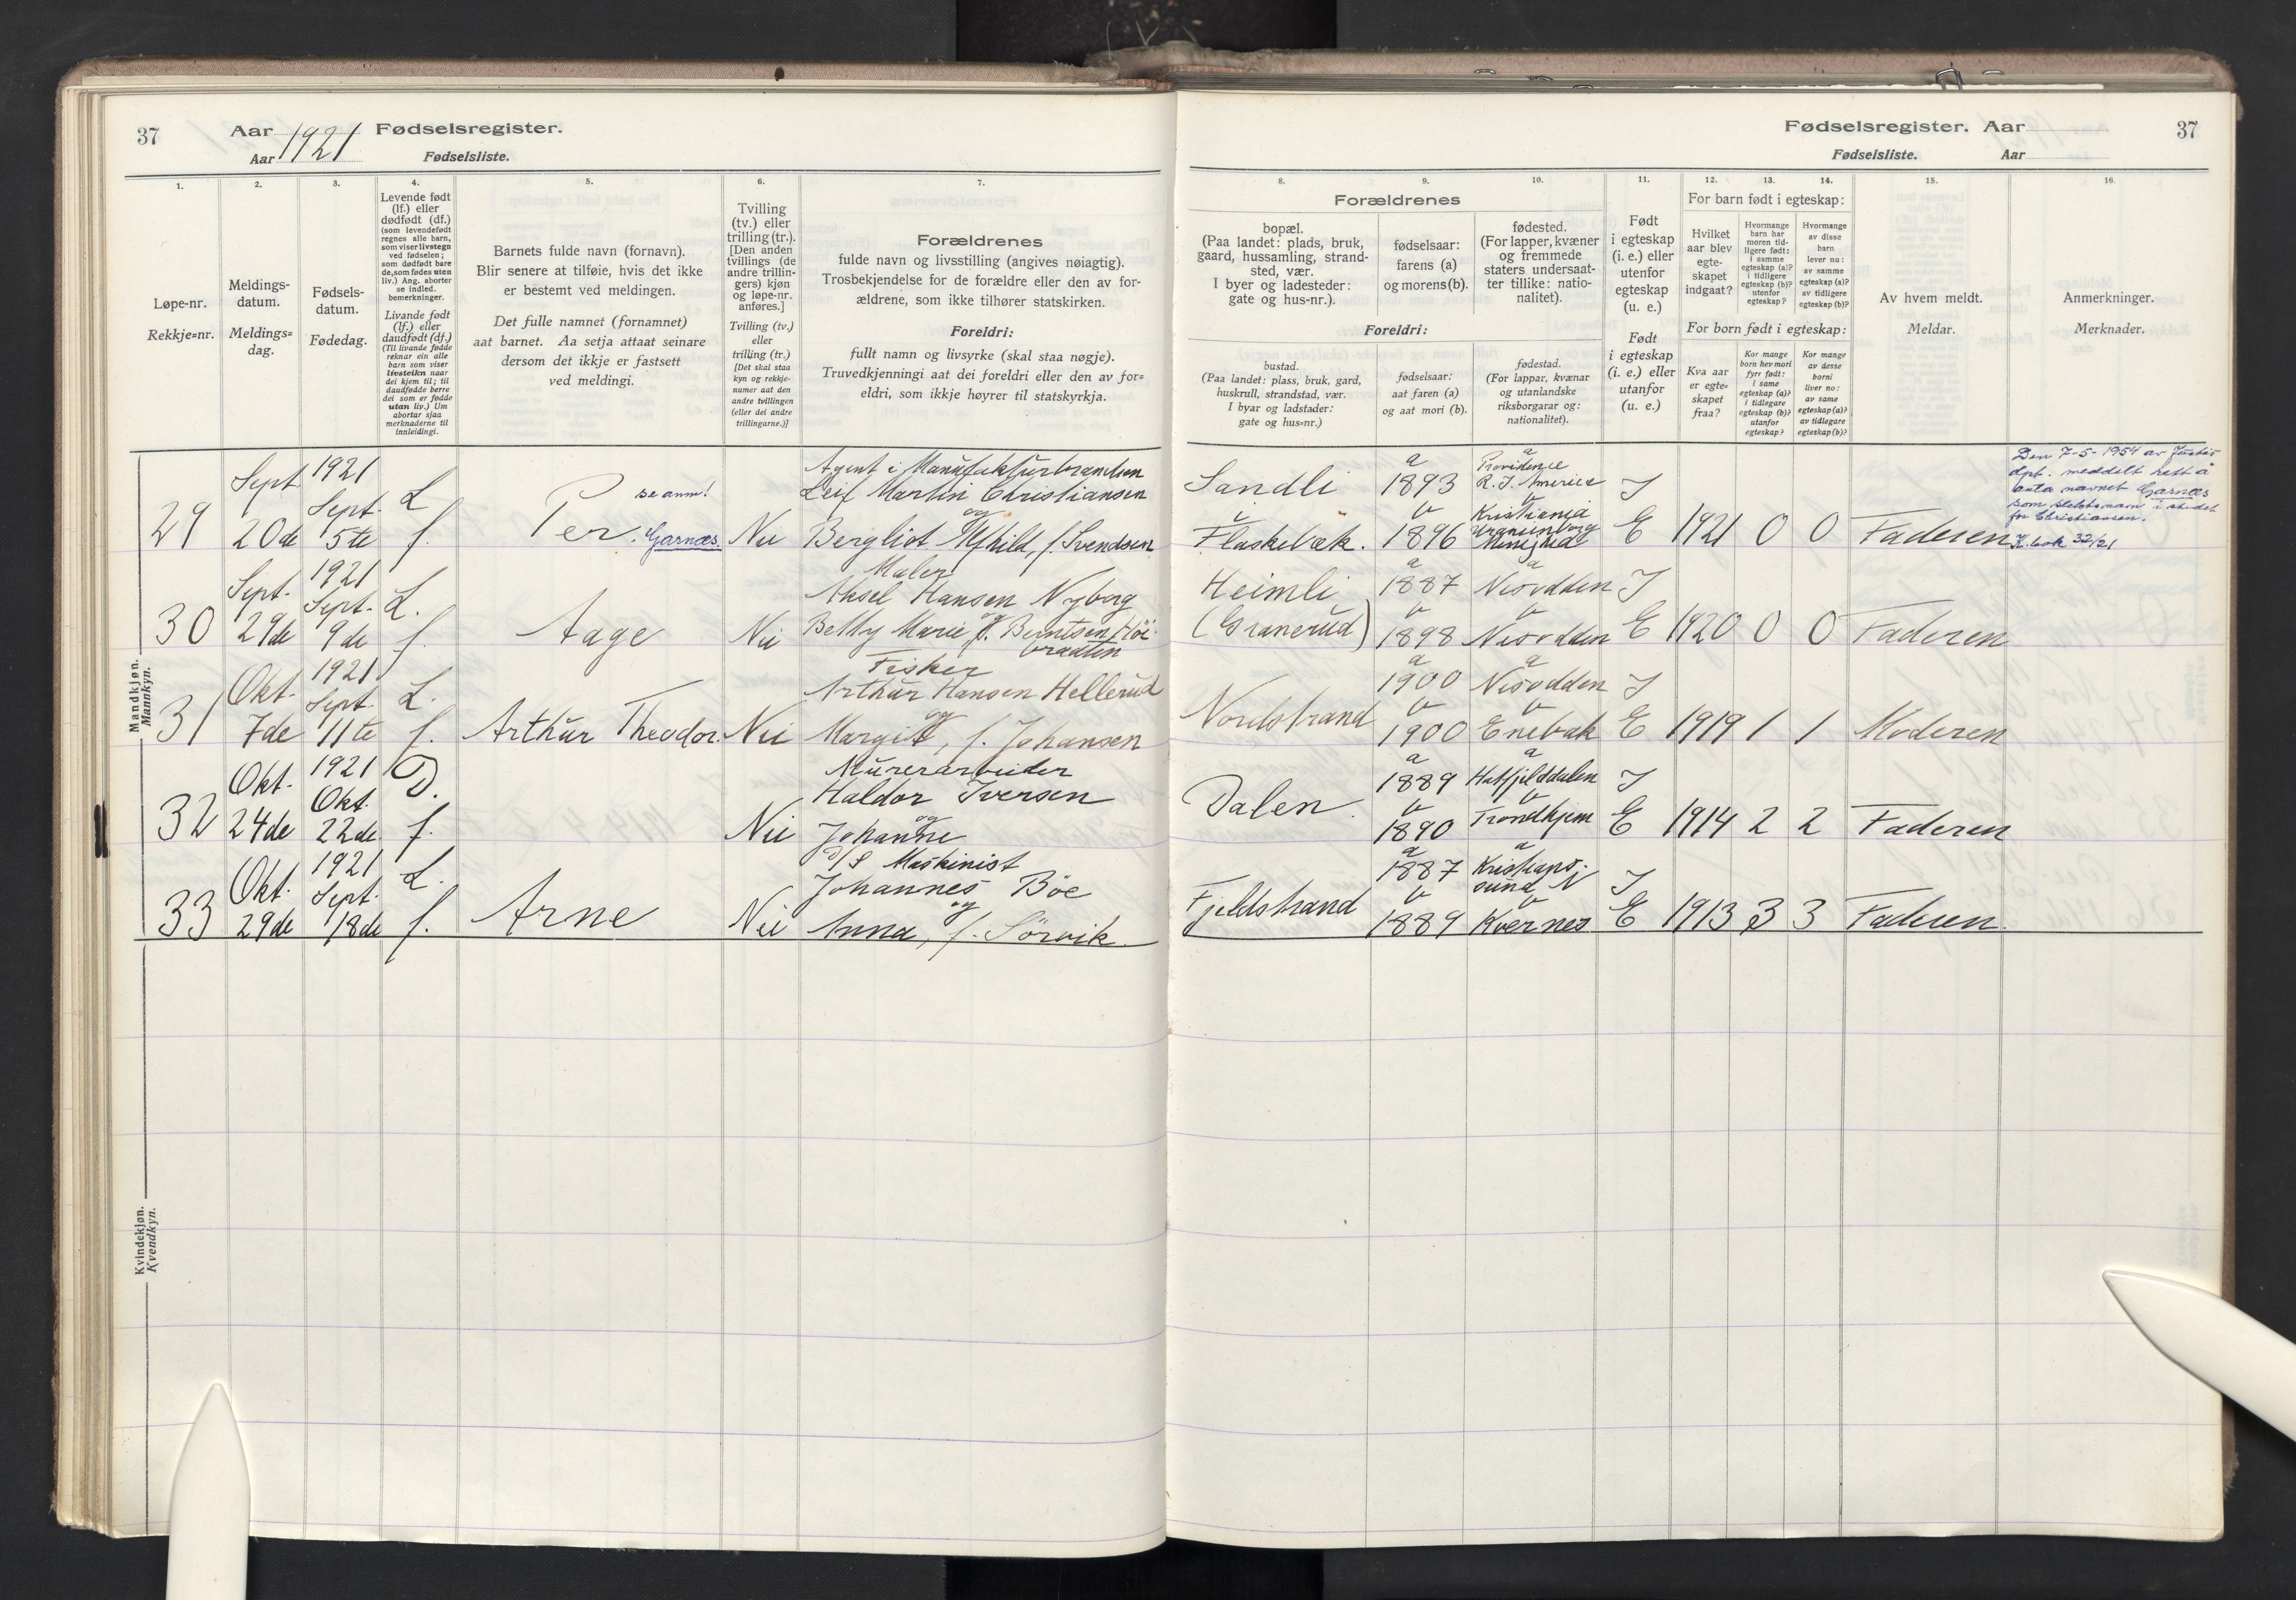 37
Aar 1921 Fødselsregister.
Aar Fødselsliste.
1.
Løpe-nr.
Rekkje=nr.
2.
Meldings-
datum.
Meldings=
dag.
3.
Fødsels-
datum.
Fødedag.
4.
Levende født
(lf.) eller
dødfødt (df.)
(som levendefødt
regnes alle barn,
som viser livstegn
ved fødselen;
som dødfødt bare
de, som fødes uten
liv.) Ang. aborter
se indled.
bemerkninger.
Livande født
(lf.) eller
daudfødt (df.)
(Til livande fødde
reknar ein alle
barn som viser
livsteikn naar
dei kjem til; til
daudfødde berre
dei som er fødde
utan liv.) Um
abortar sjaa
merknaderne til
innleidingi.
5.
Barnets fulde navn (fornavn).
Blir senere at tilføie, hvis det ikke
er bestemt ved meldingen.
Det fulle namnet (fornamnet)
aat barnet. Aa setja attaat seinare
dersom det ikkje er fastsett
ved meldingi.
6.
Tvilling
(tv.) eller
trilling (tr.).
[Den anden
tvillings (de
andre trillin-
gers) kjøn
og løpe-nr.
anføres.]
Tvilling (tv.)
eller
trilling (tr.)
[Det skal staa
kyn og rekkje-
numer aat den
andre tvillingen
(eller dei andre
trillingarne.)]
7.
Forældrenes
fulde navn og livsstilling (angives nøiagtig).
Trosbekjendelse for de forældre eller den av for-
ældrene, som ikke tilhører statskirken.
Foreldri:
fullt namn og livsyrke (skal staa nøgje).
Truvedkjenningi aat dei foreldri eller den av for=
eldri, som ikkje høyrer til statskyrkja.
Mandkjøn.
Mannkyn.
29
Sept
20de
1921
Sept.
5te
L
f.
Per. se anm!
Garnæs.
Nei
Agent i Manufakturbranchen
Leif Martin Christiansen
og
Bergliot Alfhild, f. Svendsen
30
Sept.
29de
1921
Sept.
9de
L.
f.
Aage
Nei
Maler
Aksel Hansen Nyborg
og
Betty Marie f. Berntsen Höi-
braaten
31
Okt.
7de
1921
Sept.
11te
L.
f.
Arthur Theodor.
Nei
Fisker
Arthur Hansen Hellerud
og
Margit, f. Johansen
32
Okt.
24de
1921
Okt.
22de
D.
f.
Nei
Murerarbeider
Haldor Iversen
og
Johanne
33
Okt.
29de
1921
Sept.
18de
L.
f.
Arne
Nei
D/S Maskinist
Johannes Böe
og
Anna, f. Sörvik.
Kvindekjøn.
Kvendkyn.
Fødselsregister. Aar
37
Fødselsliste. Aar
8.
Forældrenes
bopæl.
(Paa landet: plads, bruk,
gaard, hussamling, strand-
sted, vær.
I byer og ladesteder:
gate og hus-nr.).
Foreldri:
bustad.
(Paa landet: plass, bruk, gard,
huskrull, strandstad, vær.
I byar og ladstader:
gate og hus=nr.)
9.
fødselsaar:
farens (a)
og morens (b).
fødselsaar:
aat faren (a)
og aat mori (b).
10.
fødested.
(For lapper, kvæner
og fremmede
staters undersaat-
ter tillike: natio-
nalitet).
fødestad.
(For lappar, kvænar
og utanlandske
riksborgarar og:
nationalitet).
11.
Født
i egteskap
(i. e.) eller
utenfor
egteskap
(u. e.)
Født
i egteskap
(i. e.) eller
utanfor
(u. e.)
12. 13. 14.
For barn født i egteskap:
Hvilket
aar blev
egte-
skapet
indgaat?
Hvormange
barn har
moren tid-
ligere født:
i samme
egteskap (a)?
i tidligere
egteskap (b)?
utenfor
egteskap?
Hvormange
av disse
barn
lever nu:
av samme
egteskap (a)?
av tidligere
egteskap (b)?
For born født i egteskap:
Kva aar
er egte=
skapet
fraa?
Kor mange
born hev mori
fyrr født:
i same
egteskap (a)?
i tidlegare
egteskap (b)?
utanfor
egteskap?
Kor mange
av desse
borni
liver no:
av same
egteskap (a)?
av tidlegare
egteskap (b)?
15.
Av hvem meldt.
Meldar.
16.
Anmerkninger.
Merknader.
Sandli
Flaskebæk.
a
1893
b
1896
a
Providence
R. I. America
b
Kristiania
Uranienborg
Menighed
I
E
1921
0
0
Faderen
Den 7-5-1954 av Justis-
dpt. meddelt rett å
anta navnet Garnæs
som slektsnavn i stedet
for Christiansen.
K.bok 32/21
Heimli
(Granerud)
a
1887
b
1898
a
Nesodden
b
Nesodden
I
E
1920
0
0
Faderen
Nordstrand
a
1900
b
1900
a
Nesodden
b
Enebak
I
E
1919
1
1
Moderen
Dalen.
a
1889
b
1890
a
Hatfjelddalen
b
Trondhjem
I
E
1914
2
2
Faderen
Fjeldstrand
a
1887
b
1889
a
Kristians-
sund N
b
Kvernes
I
E
1913
3
3
Faderen.